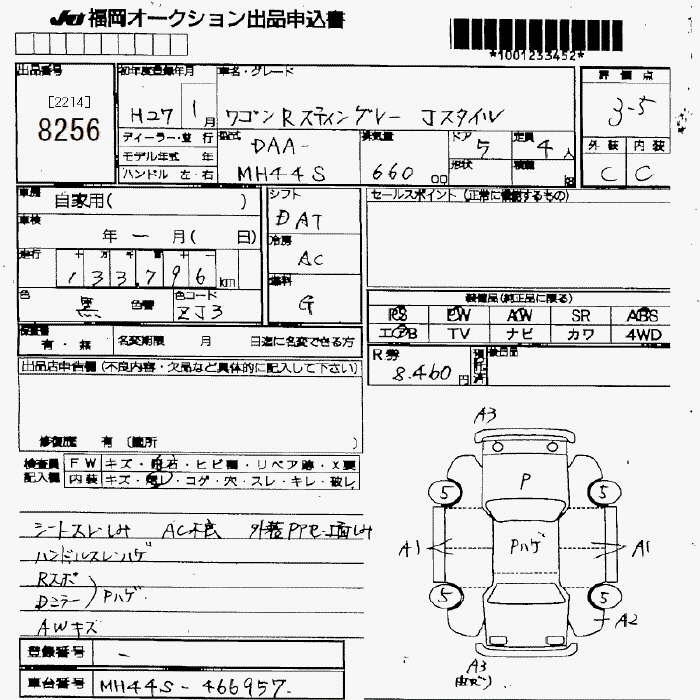 JU 福岡オークション出品申込書
*1001233452*
出品番号 初年度登録年月 車名・グレード 評価点
[2214]
8256
H27 1月 ワゴンR スティングレー Jスタイル 3-5
ディーラー・並行 型式 排気量 ドア 定員 外装 内装
モデル年式 年 DAA- 5 4人
ハンドル 左・右 MH44S 660 cc 形状 積載 C C
車歴 自家用( ) シフト セールスポイント (正常に機能するもの)
DAT
車検 年 ー 月( 日) 冷房
走行 十 万 千 百 十 AC
133,796 km 燃料
色 黒 色替 色コード ZJ3 G 装備品(純正品に限る)
PS PW AW SR ABS
エアB TV ナビ カワ 4WD
有・無 名変期限 月 日迄に名変できる方 R券 8,460円 後日品
出品店申告欄 (不良内容・欠品など具体的に記入して下さい)
修復歴 有 〔箇所 〕
検査員 FW キズ・飛石・ヒビ・リペア跡・X要
記入欄 内装 キズ・・コゲ・穴・スレ・キレ・破レ
シートスレ・しみ AC不良
ハンドルスレ・ハゲ
Rスポ
Dミラー Pハゲ
AWキズ
登録番号 -
車台番号 MH44S-466957
A3
P
5 5
A1 Pハゲ A1
5 5
A2
A3